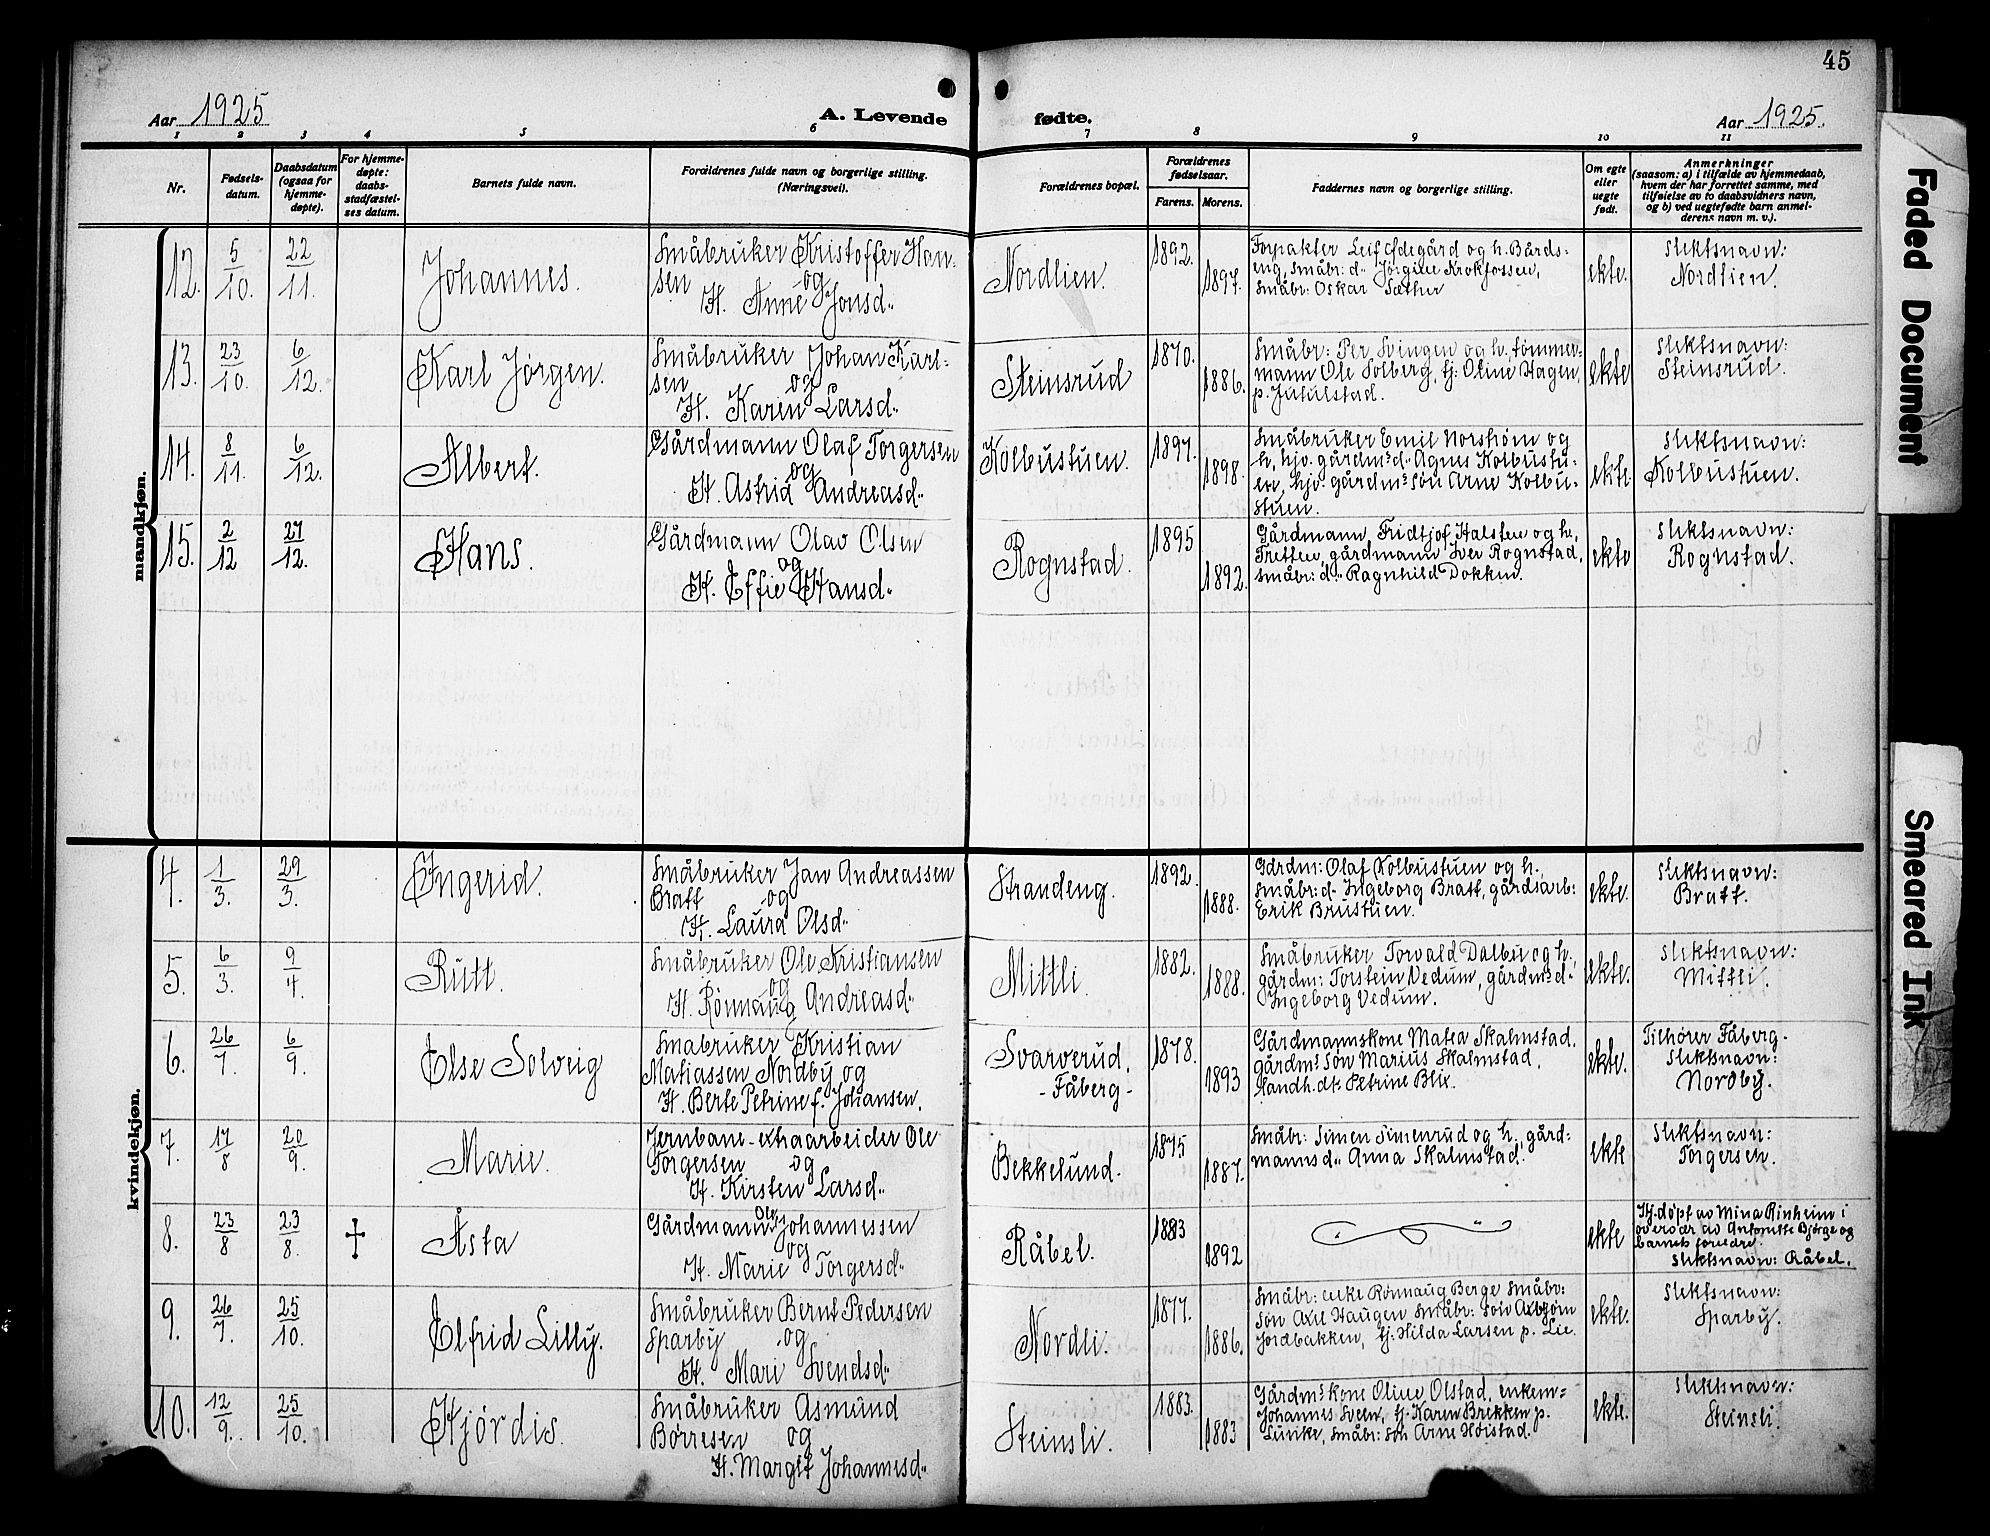 45
Aar 1925
A. Levende
fødte.
Aar 1925.
1 2 3 4 5 6 7 8 9 10 11
Nr.
Fødsels-
datum.
Daabsdatum
(ogsaa for
hjemme-
døpte).
For hjemme-
døpte:
daabs-
stadfæstel-
ses datum.
Barnets fulde navn.
Forældrenes fulde navn og borgerlige stilling.
(Næringsvei).
Forældrenes bopæl.
Forældrenes
fødselsaar.
Farens. Morens.
Faddernes navn og borgerlige stilling.
Om egte
eller
uegte
født.
Anmerkninger
(saasom: a) i tilfælde av hjemmedaab,
hvem der har forrettet samme, med
tilføielse av to daabsvidners navn,
og b) ved uegtefødte barn anmel-
derens navn m. v.).
mandkjøn.
12. 5/10. 22/11. Johannes.
Småbruker Kristoffer Han-
sen og
H. Anne Jonsd..
Nordlien. 1892. 1897.
Forpakter Leif Ødegård og h. Bårds-
eng, småbr: d.. Jørgine Krokfossen,
småbr: Oskar Sæther
ekte.
Slektsnavn:
Nordlien.
13. 23/10. 6/12. Karl Jørgen.
Småbruker Johan Karl-
sen og
H. Karen Larsd..
Steinsrud 1870. 1886.
Småbr: Per Svingen og h. tømmer-
mann Ole Solberg, tj: Oline Hagen,
p. Jutulstad.
ekte
Slektsnavn:
Steinsrud.
14. 8/11. 6/12. Albert.
Gårdmann Olaf Torgersen
og
H. Astrid Andreasd..
Kolbustuen. 1897. 1898.
Småbruker Emil Norstrøm og
h, hjv. gårdm:s d.. Agnes Kolbustu-
en, hjv. gårdm:s søn Arne Kolbu-
stuen.
ekte.
Slektsnavn:
Kolbustuen.
15. 2/12 27/12. Hans.
Gårdmann Olav Olsen
og
H. Effie Hansd..
Rognstad. 1895 1892.
Gårdmann Fridtjof Halsten og h,
Tretten, gårdmann Iver Rognstad,
småbr: d.. Ragnhild Dokken.
ekte
Slektsnavn:
Rognstad.
kvindekjøn.
4. 1/3. 29/3. Ingerid.
Småbruker Jan Andreassen
Bratt og
H. Laura Olsd..
Strandeng. 1892. 1888.
Gårdm: Olaf Kolbustuen og h.,
småbr: d. Ingeborg Bratt, gårdsarb:
Erik Brustuen.
ekte.
Slektsnavn:
Bratt.
5. 6/3. 9/4. Rutt.
Småbruker Ole Kristiansen
og
H. Rønnaug Andreasd..
Mittli. 1882. 1888.
Småbruker Torvald Dalbu og h.,
gårdm: Torstein Vedum, gårdm:s d.
Ingeborg Vedum.
ekte.
Slektsnavn:
Mittli.
6. 26/7. 6/9. Else Solveig
Småbruker Kristian
Matiassen Nordby og
H. Berte Petrine f. Johansen.
Svarverud,
- Fåberg -
1878. 1893
Gårdmannskone Matea Skalmstad.
gårdm:s søn Marius Skalmstad,
Landh. dt: Petrine Blix.
ekte.
Tilhører Fåberg.
Slektsnavn:
Nordby.
7. 17/8 20/9. Marie.
Jernbane-extraarbeider Ole
Torgersen og
H. Kirsten Larsd..
Bekkelund. 1875 1887.
Småbr: Simen Simenrud og h., gård-
manns d.. Anna Skalmstad.
ekte
Slektsnavn:
Torgersen.
8. 23/8 23/8. + Åsta
Gårdmann Ole Johannessen
og
H. Marie Torgersd..
Råbel. 1883 1892
ekte
Hj. døpt av Mina Rinheim i
overvær av Antonette Bjørge og
barnets foreldre.
Slektsnavn: Råbel.
9. 26/7. 25/10. Elfrid Lilly.
Småbruker Bernt Pedersen
Sparby og
H. Mari Svendsd..
Nordli. 1877. 1886.
Småbr: enke Rønnaug Berge Småbr:
søn Axel Haugen Småbr: søn Asbjørn
Jordbakken, tj: Hilda Larsen p. Lie.
ekte.
Slektsnavn:
Sparby.
10. 12/9. 25/10. Hjördis.
Småbruker Asmund
Børresen og
H. Margit Johannesd..
Steinsli. 1883. 1883
Gårdm:s kone Oline Olstad, enkem-
Johannes Sveen, tj: Karen Brekken p.
småbr: søn Arne Høistad.
ekte.
Slektsnavn:
Steinsli.
Faded Document
Smeared Ink